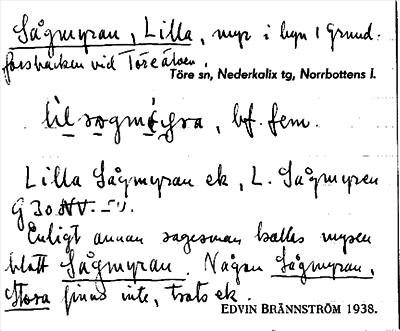 Sågmyran, Lilla, myr i byn Grund-
forsbacken vid Töreälven.
Töre sn, Nederkalix tg, Norrbottens l.
bf. fem.
Lilla Sågmyran ek, L. Sågmyren
G 30
Enligt annan sagesman kallas myren
blott Sågmyran. Någon Sågmyran,
Stora finns inte, trots ek.
EDVIN BRÄNNSTRÖM 1938.